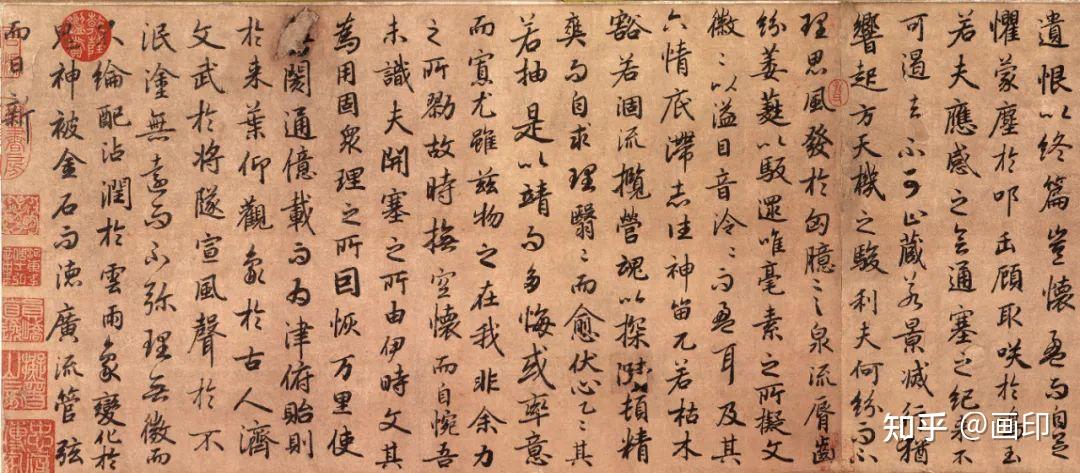 遺恨以終篇豈懷盈而自足
懼蒙塵於叩缶顧取咲於鳴玉
若夫應感之會通塞之紀来不
可遏去不可止藏若景滅行猶
響起方天機之駿利夫何紛而不
理思風發於匈臆言泉流脣齒
紛葳蕤以馺遝唯毫素之所擬文
徽〻以溢目音泠〻而盈耳及其
六情底滯志往神留兀若枯木
豁若涸流攬營魂以探賾頓精
爽而自求理翳〻而愈伏心乙〻其
若抽是以靖而多悔或率意
而寡尤雖茲物之在我非余力
之所勠故時撫空懷而自惋吾
未識夫開塞之所由伊時文其
為用固眾理之所因恢万里使
閡通億載而為津俯貽則
於来葉仰觀象於古人濟
文武於将隧宣風聲於不
泯塗無遠而不弥理無微而
不綸配沾潤於雲雨象變化於
鬼神被金石而德廣流管弦
而日新
知乎 @画印